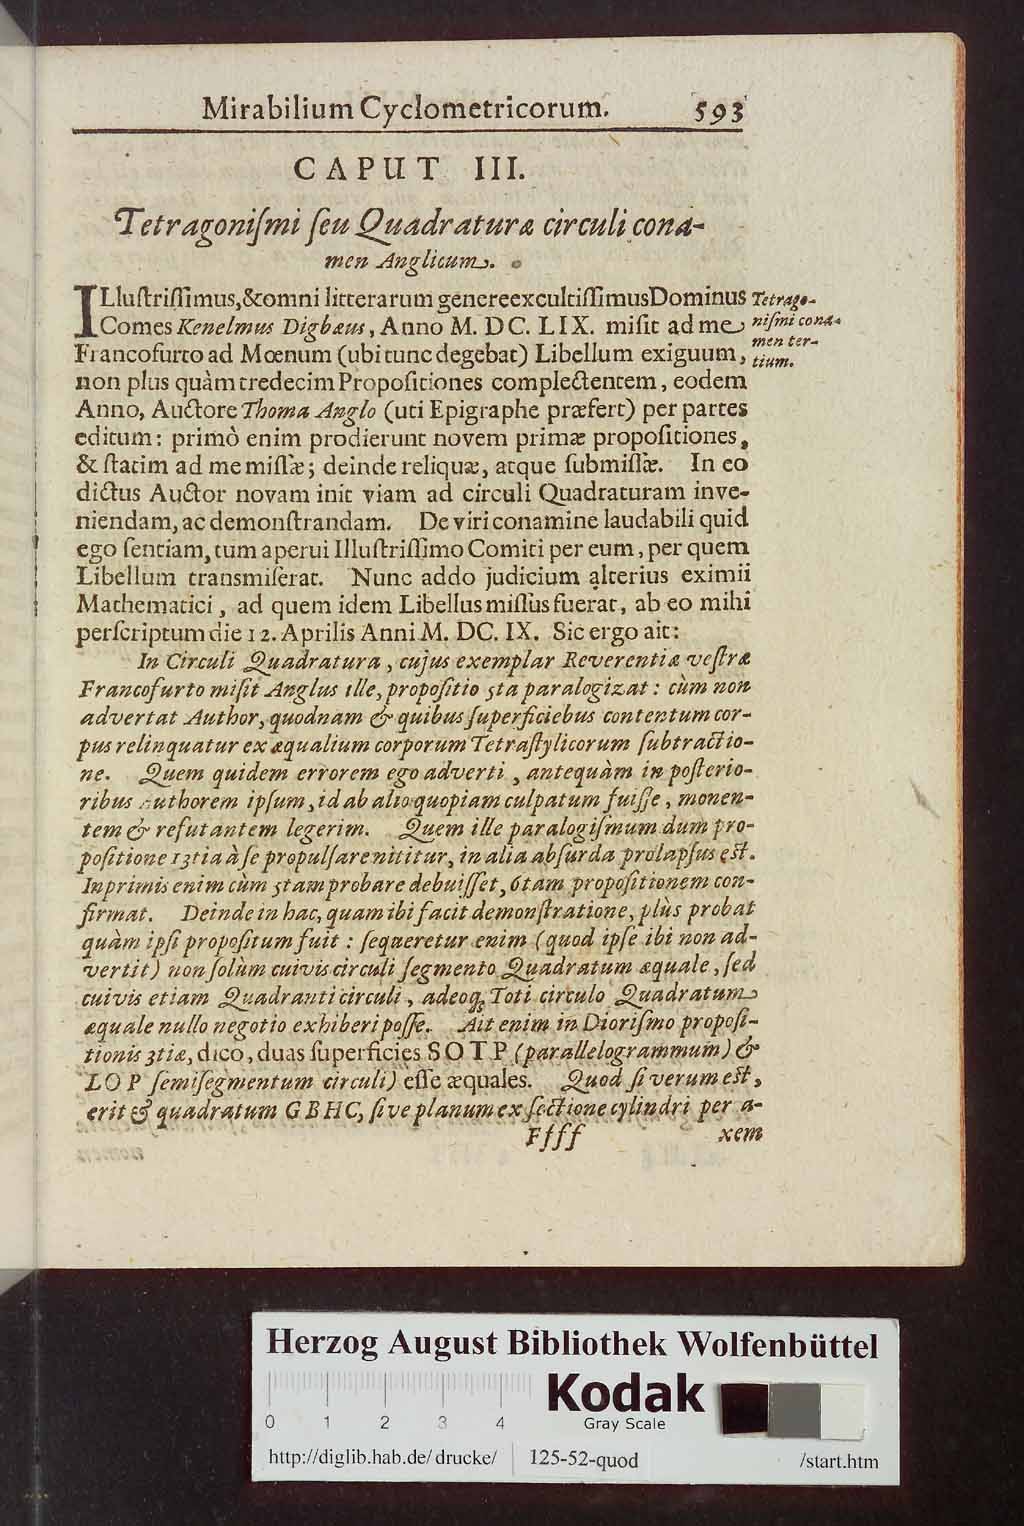 Mirabilium Cyclometricorum. 593
CAPUT III.
Tetragoniſmi ſeu Quadraturæ circuli cona-
men Anglicum.
ILluſtriſſimus, &omni litterarum genere excultiſſimus Dominus
Comes Kenelmus Digbæus, Anno M. DC. LIX. miſit ad me
Francofurto ad Mœnum (ubi tunc degebat) Libellum exiguum,
non plus quàm tredecim Propoſitiones complectentem, eodem
Anno, Auctore Thoma Anglo (uti Epigraphe præfert) per partes
editum: primò enim prodierunt novem primæ propoſitiones,
& ſtatim ad me miſſæ; deinde reliquæ, atque ſubmiſſæ. In eo
dictus Auctor novam init viam ad circuli Quadraturam inve-
niendam, ac demonſtrandam. De viri conamine laudabili quid
ego ſentiam, tum aperui Illuſtriſſimo Comiti per eum, per quem
Libellum transmiſerat. Nunc addo judicium alterius eximii
Mathematici, ad quem idem Libellus miſſus fuerat, ab eo mihi
perſcriptum die 12. Aprilis Anni M. DC. IX. Sic ergo ait:
Tetrago-
niſmi cona-
men ter-
tium.
In Circuli Quadratura, cujus exemplar Reverentiæ veſtræ
Francofurto miſit Anglus ille, propoſitio 5ta paralogizat: cùm non
advertat Author, quodnam & quibus ſuperficiebus contentum cor-
pus relinquatur ex æqualium corporum Tetraſtylicorum ſubtractio-
ne. Quem quidem errorem ego adverti, antequàm in poſterio-
ribus Authorem ipſum, id ab alio quopiam culpatum fuiſſe, monen-
tem & refutantem legerim. Quem ille paralogiſmum dum pro-
poſitione 13tia à ſe propulſare nititur, in alia abſurda prolapſus eſt.
Inprimis enim cùm 5tam probare debuiſſet, 6tam propoſitionem con-
firmat. Deinde in hac, quam ibi facit demonſtratione, plùs probat
quàm ipſi propoſitum fuit: ſequeretur enim (quod ipſe ibi non ad-
vertit) non ſolùm cuivis circuli ſegmento Quadratum æquale, ſed
cuivis etiam Quadranti circuli, adeoq; Toti circulo Quadratum
æquale nullo negotio exhiberi poſſe. Ait enim in Dioriſmo propoſi-
tionis 3tiæ, dico, duas ſuperficies SOTP (parallelogrammum) &
LOP ſemiſegmentum circuli) eſſe æquales. Quod ſi verum eſt,
erit & quadratum GBHC, ſive planum ex ſectione cylindri per a-
Ffff xem
Herzog August Bibliothek Wolfenbüttel
Kodak
Gray Scale
0 1 2 3 4
http://diglib.hab.de/drucke/ 125-52-quod /start.htm